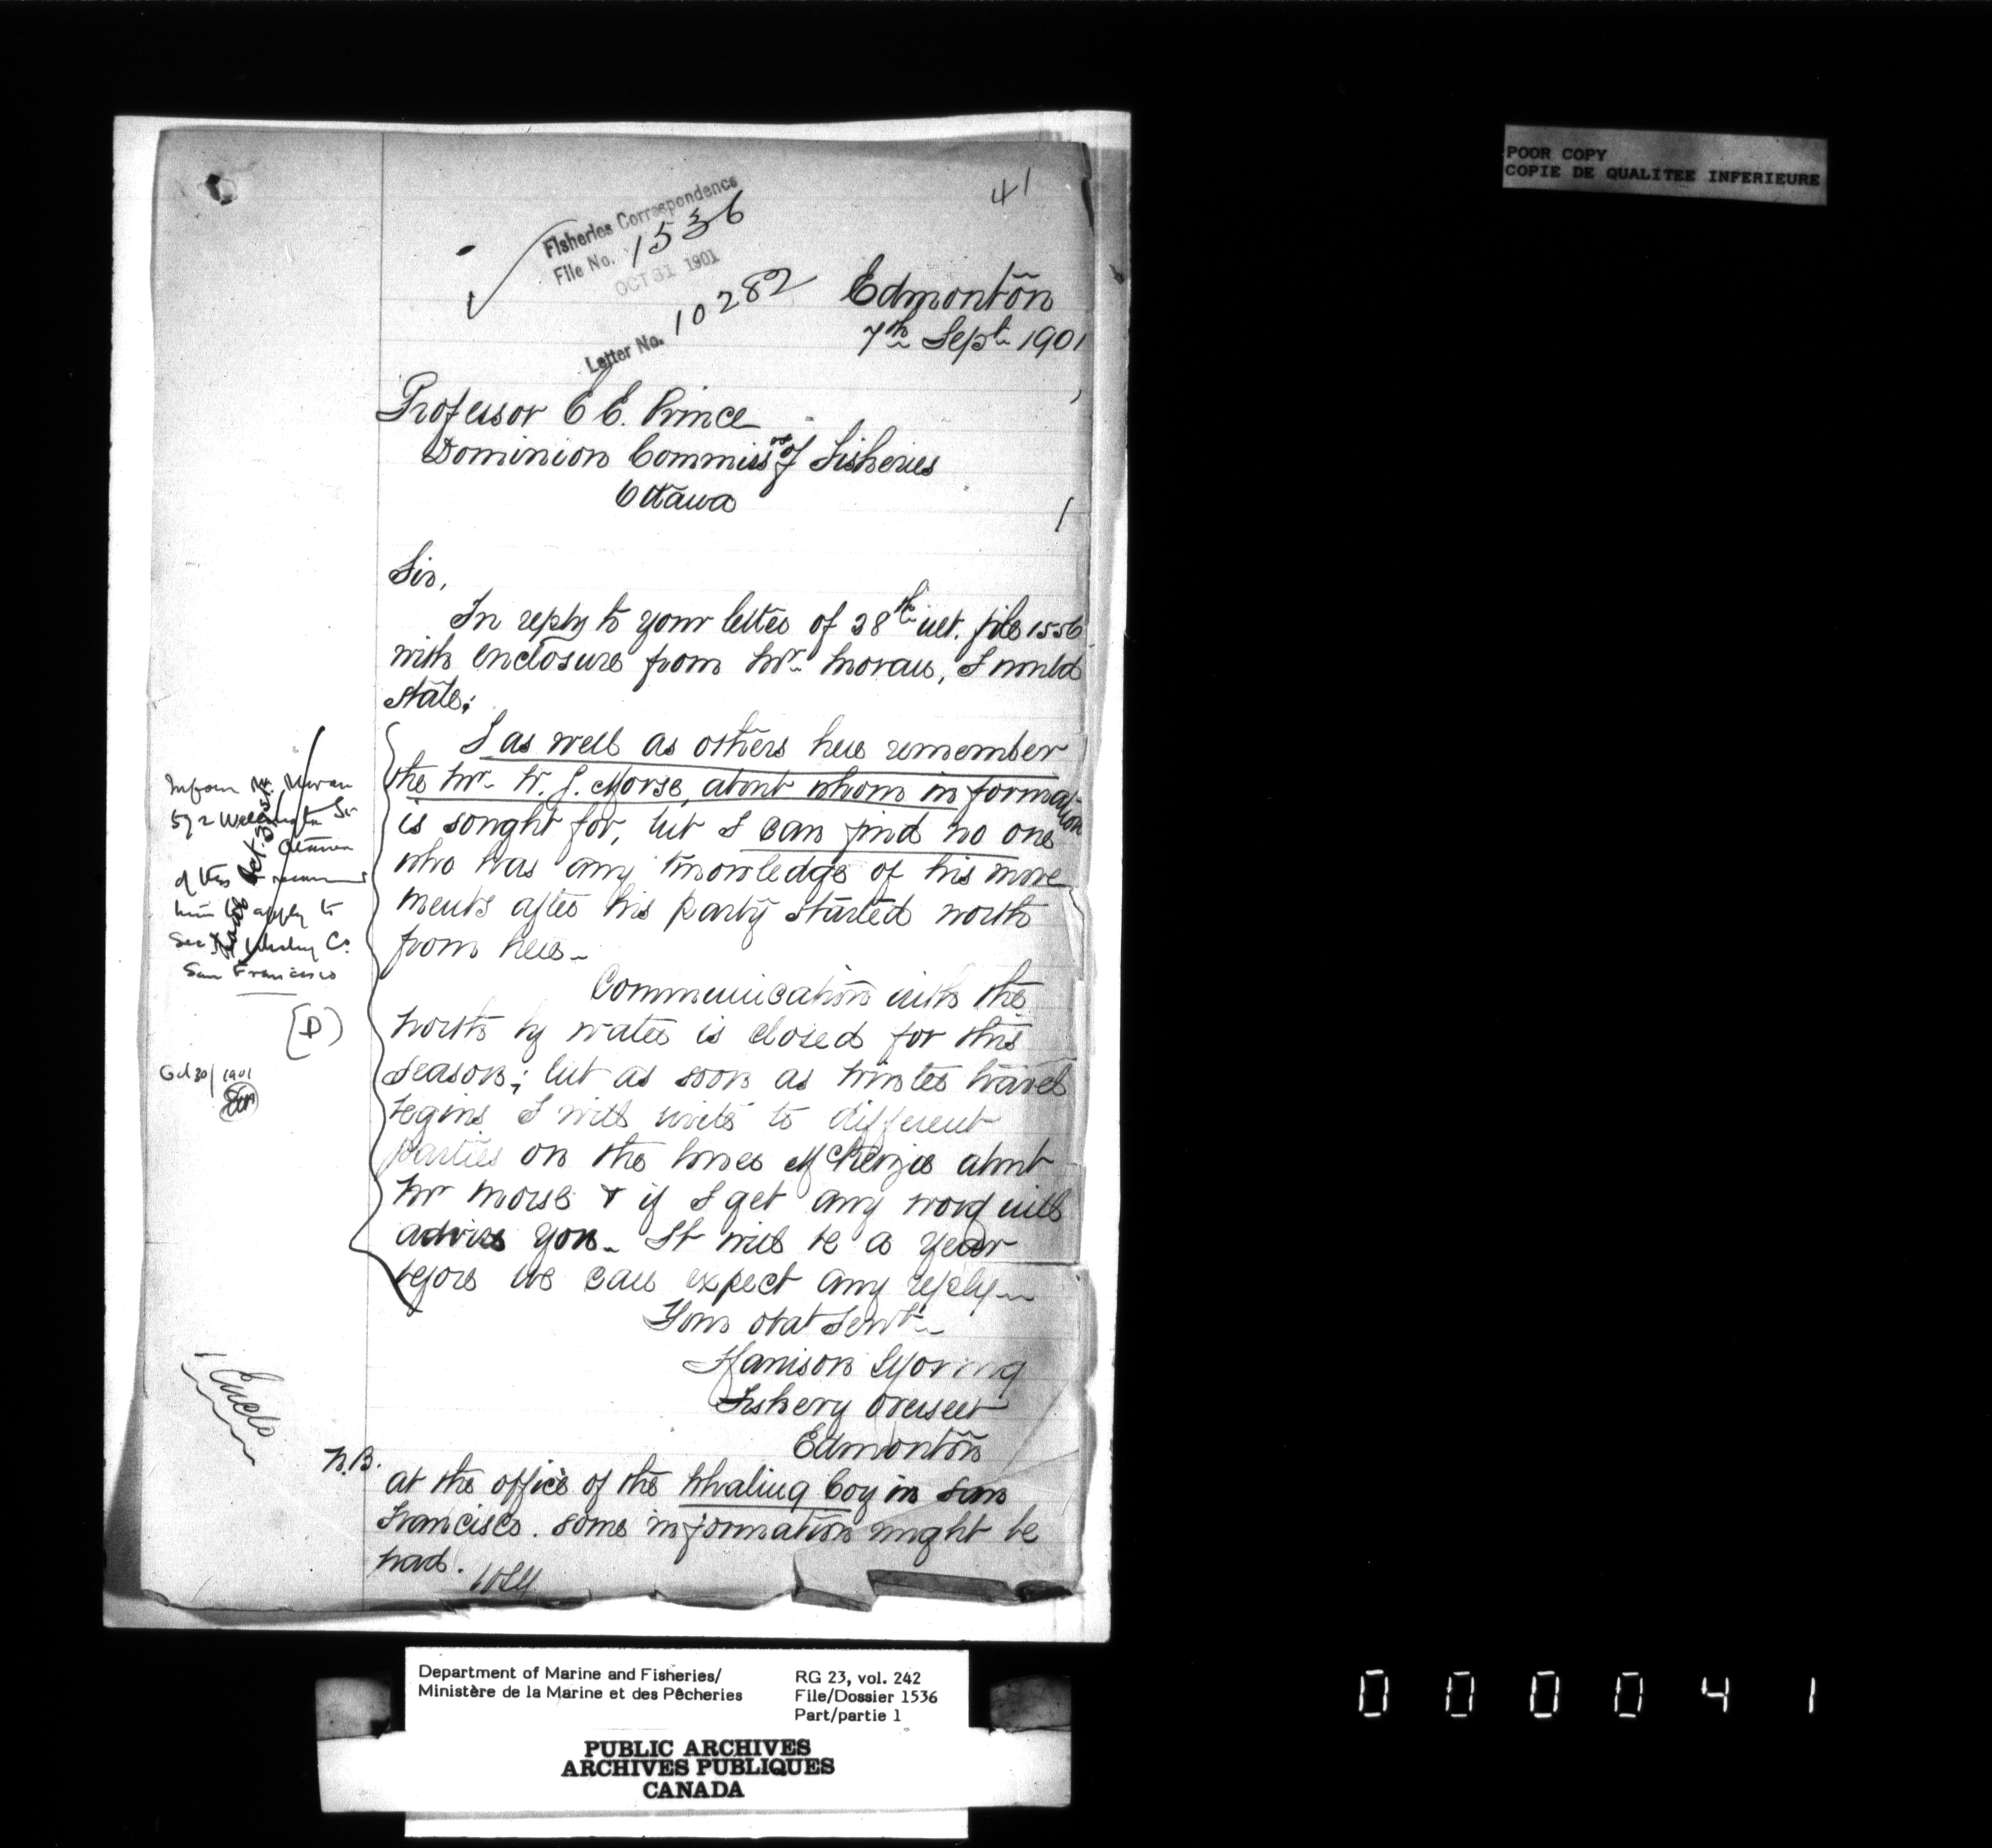 POOR COPY
COPIE DE QUALITEE INFERIEURE
41
Fisheries Correspondence
File No. 1536
OCT 31 1901
Letter No. 10282
Edmonton
7th Sept. 1901
Professor E E. Prince
Dominion Commissr of Fisheries
Ottawa
Sir,
In reply to your letter of 28th ult. file 1536
with enclosure from Mr. Moran, I would
state;
I as well as others here remember
the Mr. W. J. Morse, about whom information
is sought for, but I can find no one
who has any knowledge of his move
ments after his party started north
from here.
Communication with the
north by water is closed for this
season; but as soon as winter travel
begins I will write to different
parties on the lower McKenzie about
Mr Morse & if I get any word will
advise you. It will be a year
before we can expect any reply
Your obdt Servt.
Harrison Young
Fishery Overseer
Edmonton
N.B.
at the office of the Whaling Coy in San
Francisco. some information might be
had.
Inform Mr. Moran
572 Wellington St
Ottawa
of this
him to apply to
Secy Whaling Co.
San Francisco
(D)
Oct 30/1901
Department of Marine and Fisheries/
Ministère de la Marine et des Pêcheries
RG 23, vol. 242
File/Dossier 1536
Part/partie 1
PUBLIC ARCHIVES
ARCHIVES PUBLIQUES
CANADA
000041